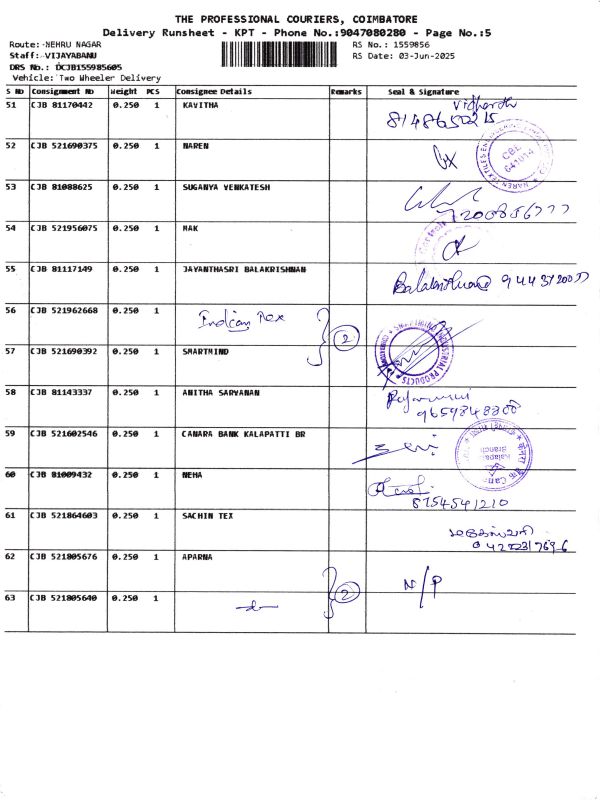 THE PROFESSIONAL COURIERS, COIMBATORE
Delivery Runsheet - KPT - Phone No.:9047080280 - Page No.:5
Route: NEHRU NAGAR
RS No.: 1559856
Staff: VIJAYABANU
RS Date: 03-Jun-2025
DRS No.: DCJB155985605
Vehicle: Two Wheeler Delivery
S No Consignment No Weight PCS Consignee Details Remarks Seal & Signature
51 CJB 81170442 0.250 1 KAVITHA
8148650215
52 CJB 521690375 0.250 1 NAREN
CBE
641014
53 CJB 81088625 0.250 1 SUGANYA VENKATESH
7200856777
54 CJB 521956075 0.250 1 MAK
55 CJB 81117149 0.250 1 JAYANTHASRI BALAKRISHNAN
56 CJB 521962668 0.250 1 Indian Tex
2
57 CJB 521690392 0.250 1 SMARTMIND
SMARTMIND INDUSTRIAL PRODUCTS
58 CJB 81143337 0.250 1 ANITHA SARVANAN
9659848800
59 CJB 521602546 0.250 1 CANARA BANK KALAPATTI BR
60 CJB 81009432 0.250 1 NEHA
8754541210
61 CJB 521864603 0.250 1 SACHIN TEX
62 CJB 521805676 0.250 1 APARNA
2 N/P
63 CJB 521805640 0.250 1